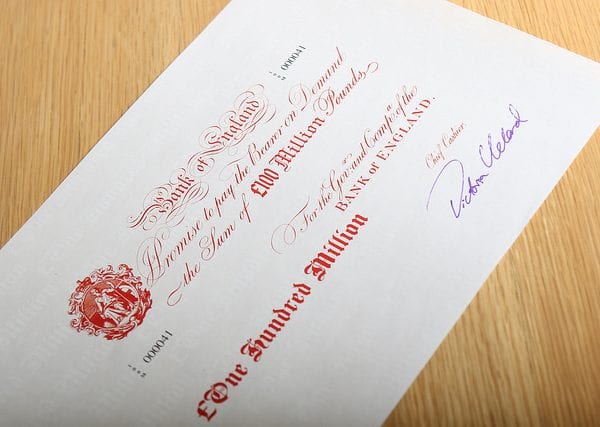 000041
Bank of England
Promise to pay the Bearer on Demand
the Sum of £100 Million Pounds,
For the Govr. and Compa. of the
BANK of ENGLAND.
Chief Cashier.
Victoria Cleland
£One Hundred Million
000041